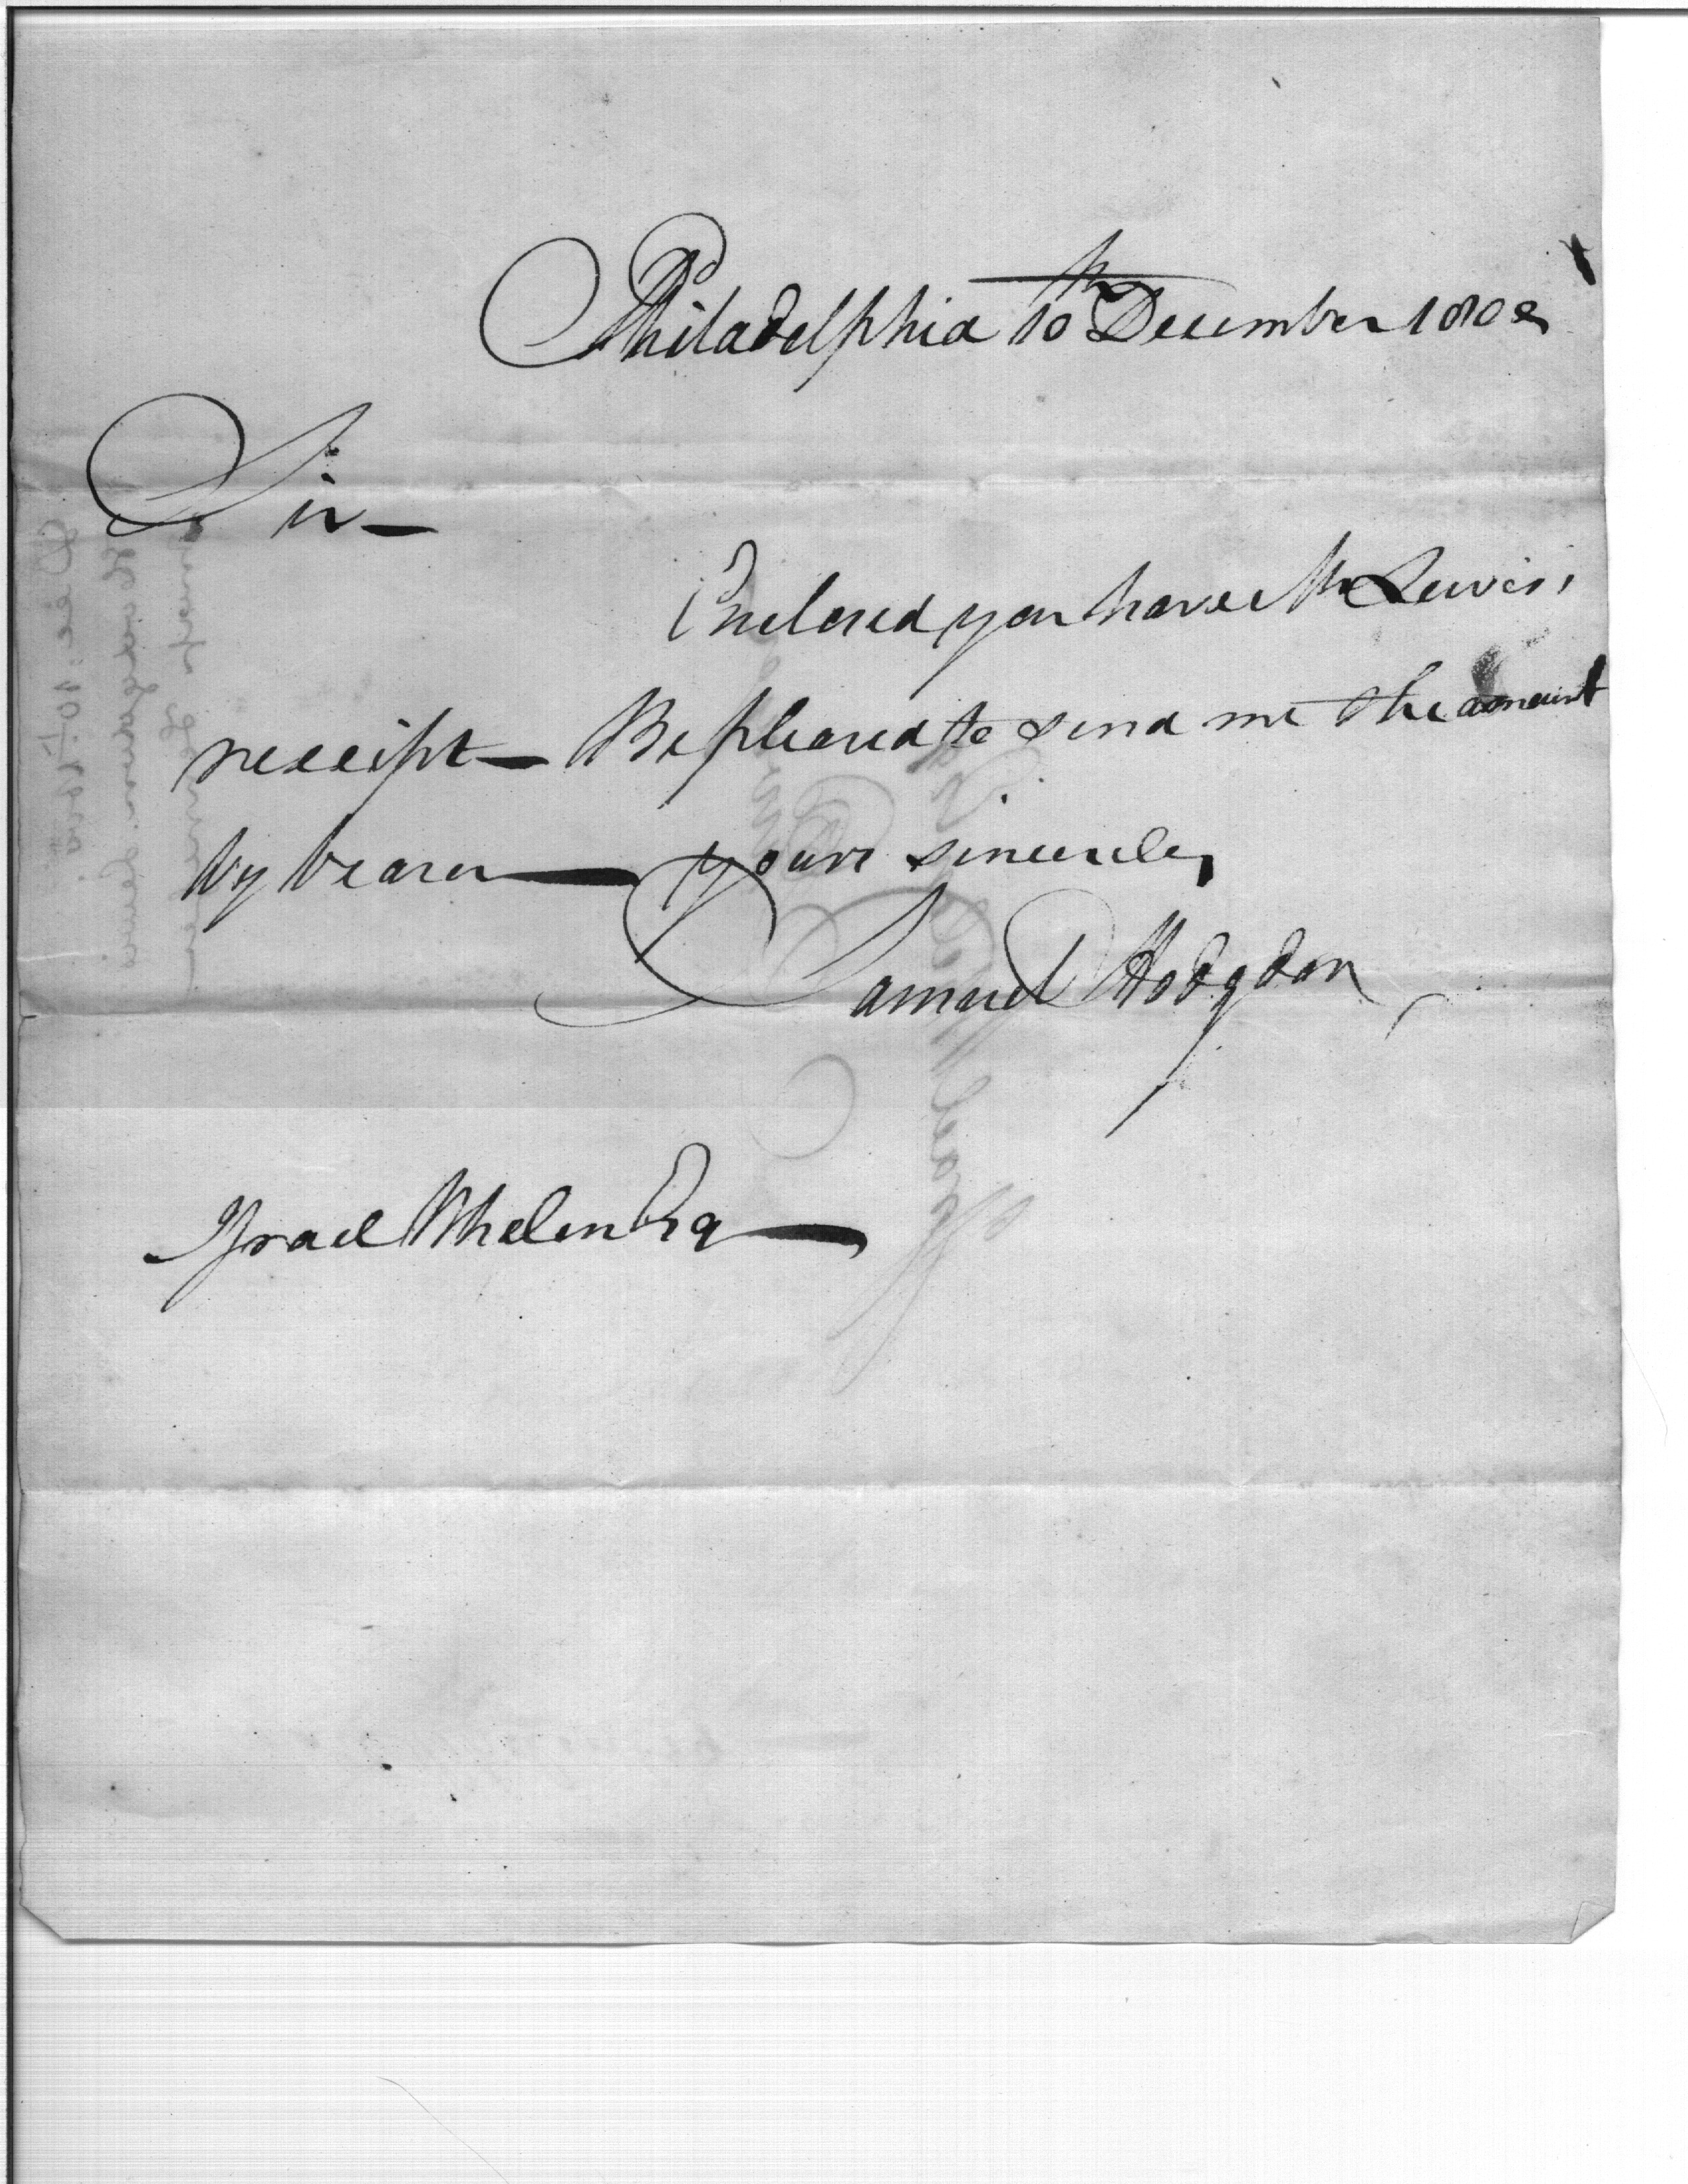 Philadelphia 10th December 1802
Sir —
Enclosed you have Mr Lewis's
receipt — Be pleased to send me the amount
by bearer — yours sincerely
Samuel Hodgdon
Israel Whelen Esq —